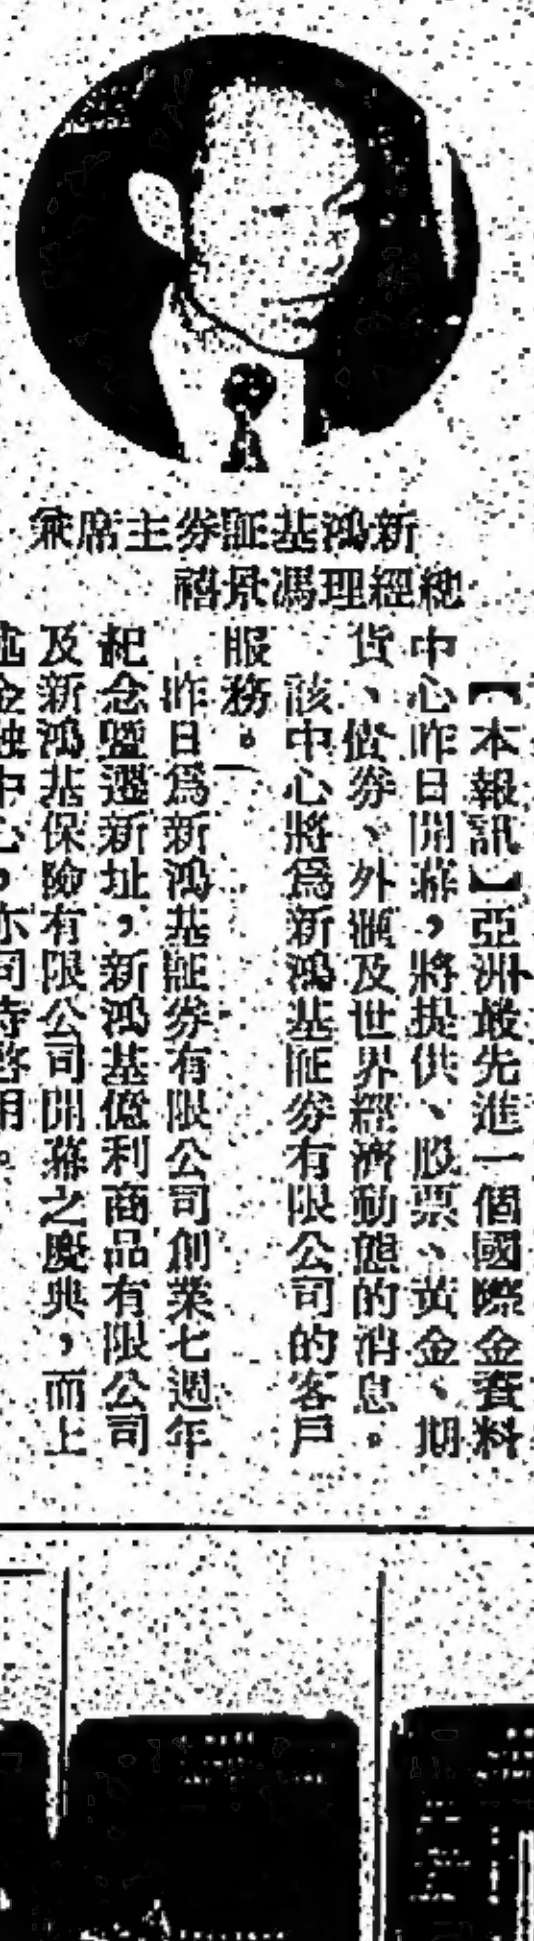 新鴻基証券主席兼
總經理馮景禧
【本報訊】亞洲最先進一個國際金資料
中心昨日開幕,將提供、股票、黃金、期
貨、債券、外匯及世界經濟動態的消息。
該中心將為新鴻基証券有限公司的客戶
服務。
昨日為新鴻基証券有限公司創業七週年
紀念暨遷新址,新鴻基億利商品有限公司
及新鴻基保險有限公司開幕之慶典,而上
述金融中心,亦同時啓用。